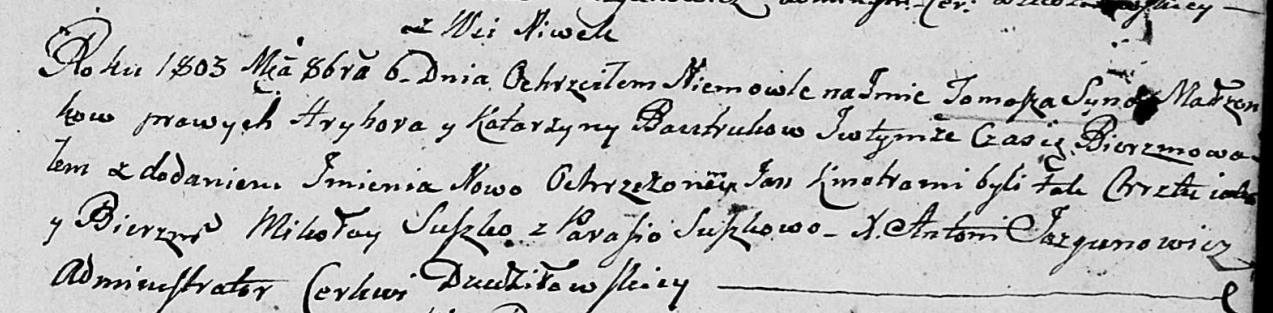 z Wsi Niwek
Roku 1803 Mca 8bra 6 Dnia Ochrzciłem Niemowle na Jmie Tomasza Syna Małżon
kow prawych Hryhora y Katarzyny Bautrukow Jwtymże Czasie Bierzmowa-
łem z dodaniem Jmienia Nowo Ochrzczoney Jan Kmotrami byli tak Chrztu iako
y Bierzm Mikołay Suszko z Parasio Suszkowo - X. Antoni Jazgunowicz
Administrator Cerkwi Dzudziłowskiey